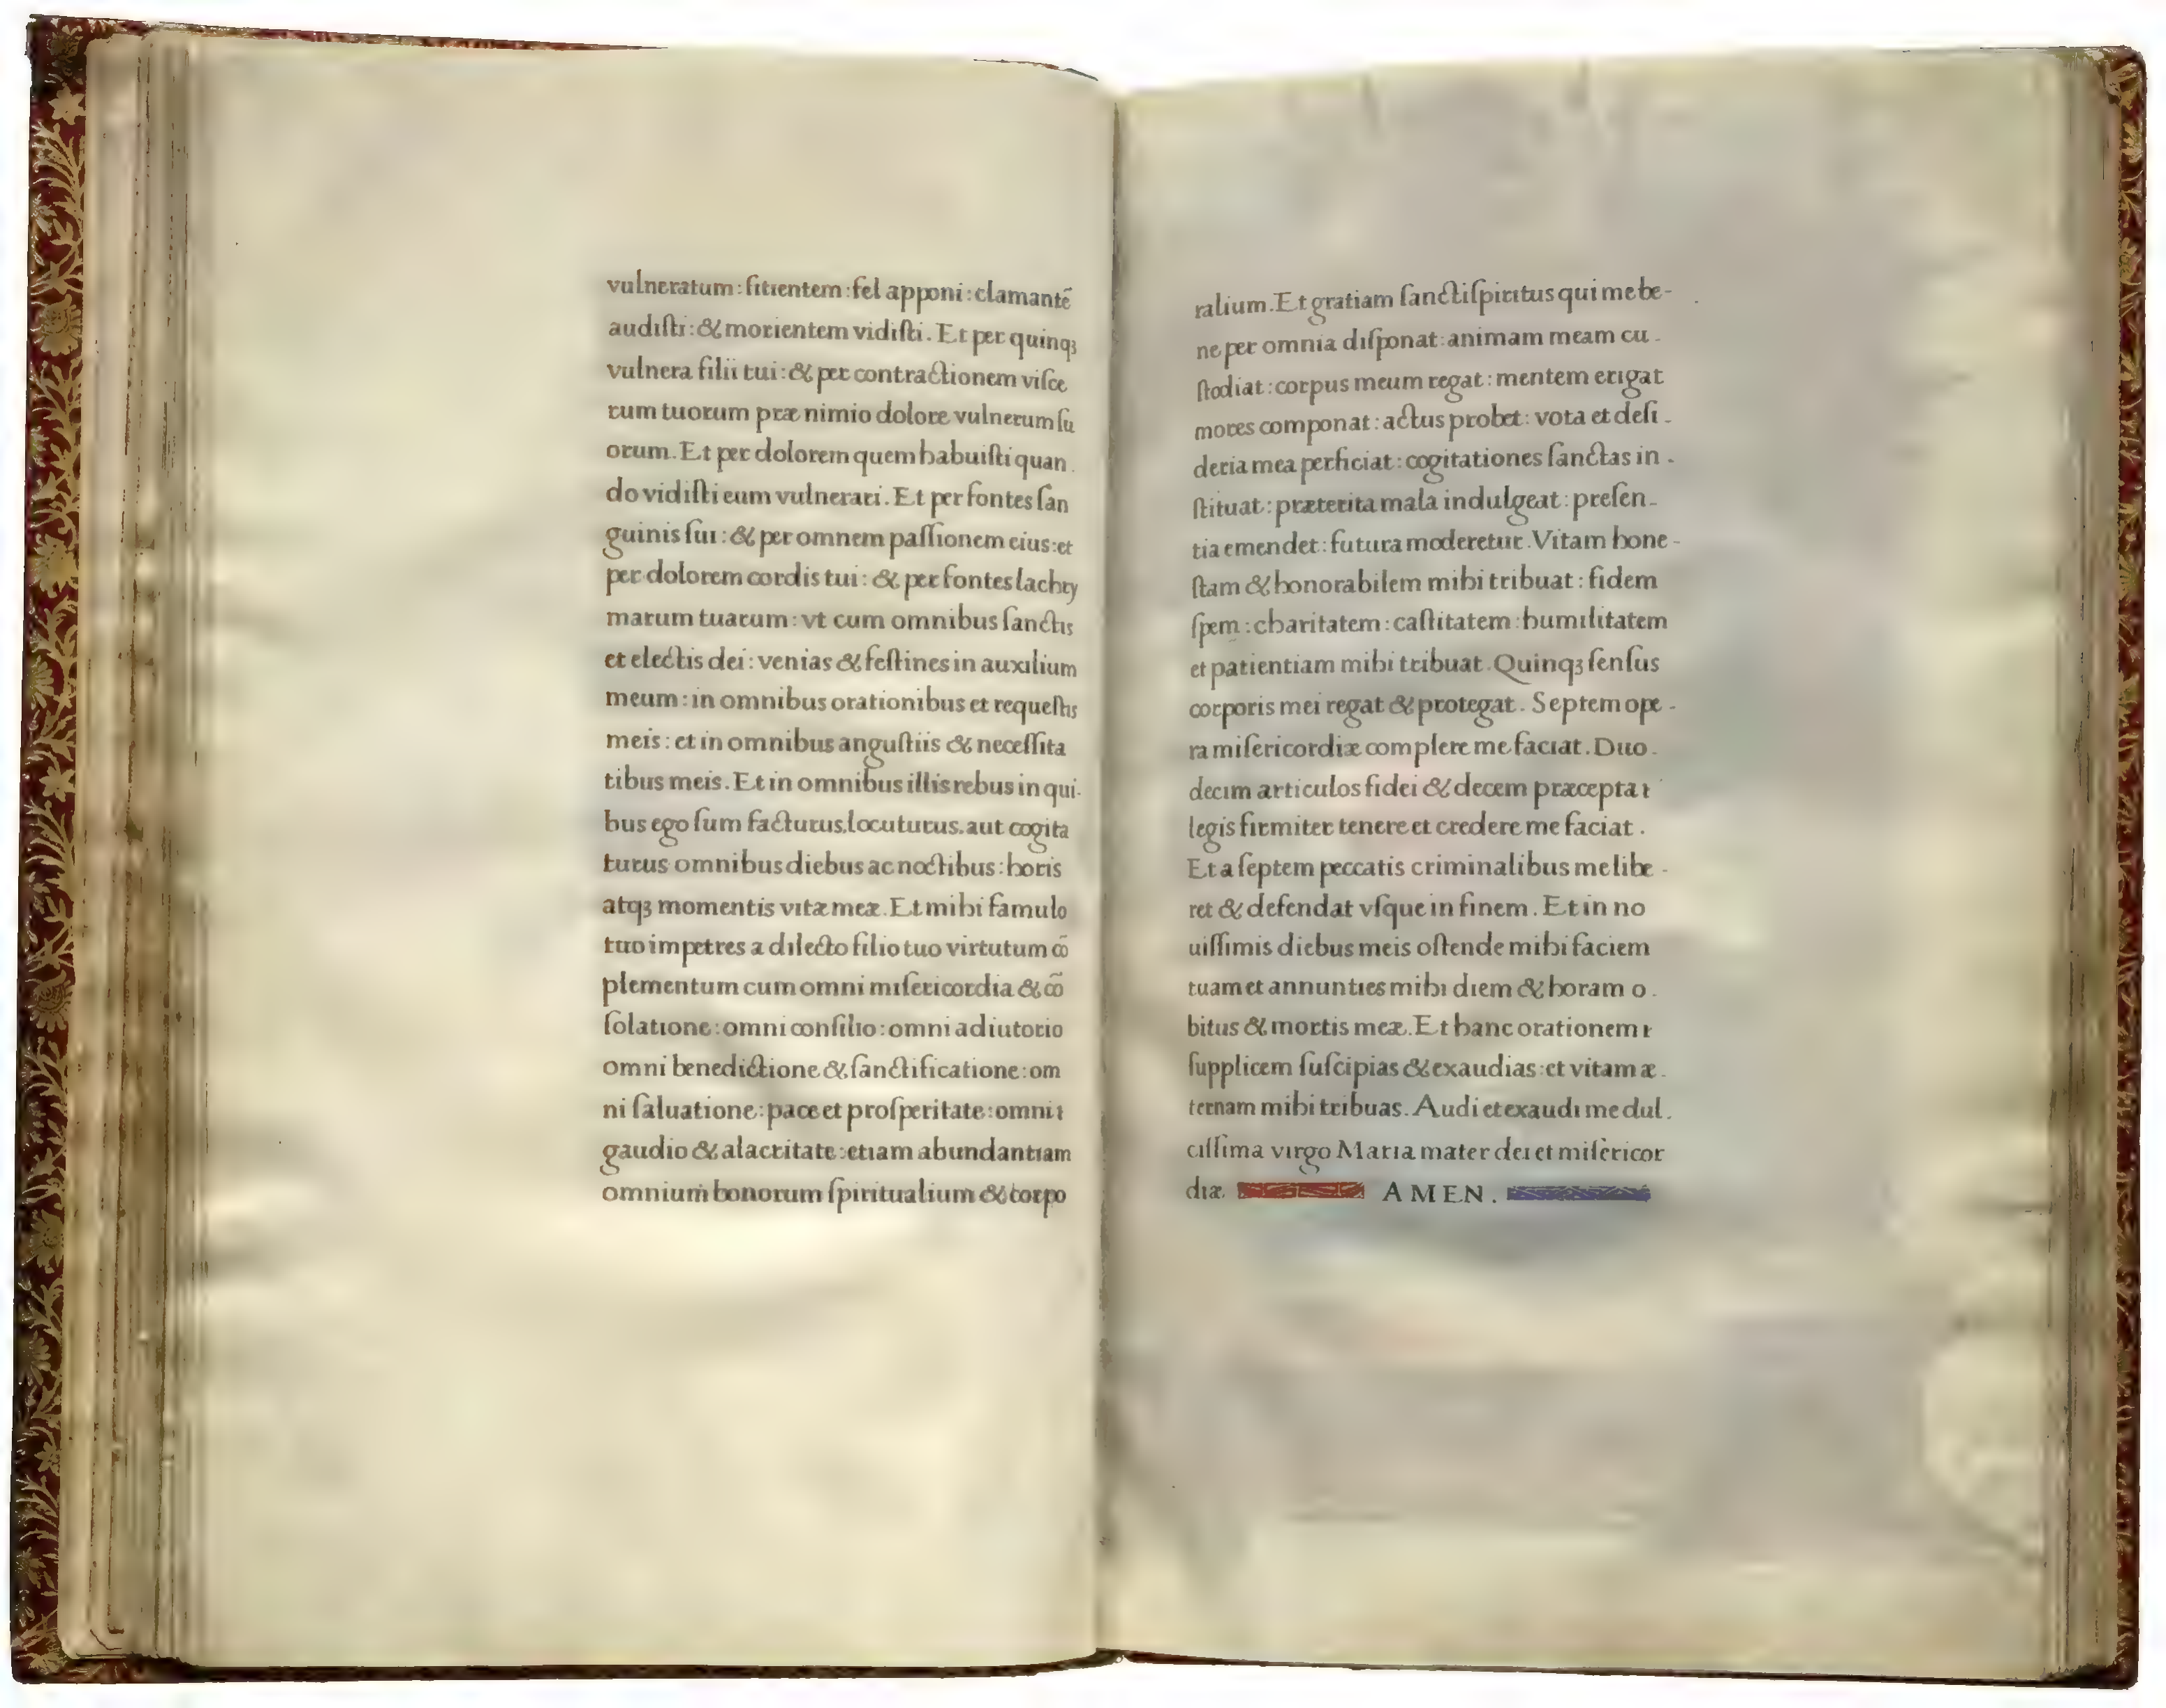 vulneratum : ſitientem : fel apponi : clamantē
audiſti : & morientem vidiſti . Et per quinqꝫ
vulnera filii tui : & per contractionem viſce
rum tuorum præ nimio dolore vulnerum ſu
orum . Et per dolorem quem habuiſti quan .
do vidiſti eum vulnerari . Et per fontes ſan
guinis ſui : & per omnem paſſionem eius : et
per dolorem cordis tui : & per fontes lachry
marum tuarum : vt cum omnibus ſanctis
et electis dei : venias & feſtines in auxilium
meum : in omnibus orationibus et requeſtis
meis : et in omnibus anguſtiis & neceſſita
tibus meis . Et in omnibus illis rebus in qui-
bus ego ſum facturus . locuturus . aut cogita
turus omnibus diebus ac noctibus : horis
atqꝫ momentis vitæ meæ . Et mihi famulo
tuo impetres a dilecto filio tuo virtutum cō
plementum cum omni miſericordia & cō
ſolatione : omni conſilio : omni adiutorio
omni benedictione & ſanctificatione : om
ni ſaluatione : pace et proſperitate : omni ɩ
gaudio & alacritate : etiam abundantiam
omnium bonorum ſpiritualium & corpo
ralium . Et gratiam ſancti ſpiritus qui me be-
ne per omnia diſponat : animam meam cu -
ſtodiat : corpus meum regat : mentem erigat
mores componat : actus probet : vota et deſi -
deria mea perficiat : cogitationes ſanctas in -
ſtituat : præterita mala indulgeat : preſen -
tia emendet : futura moderetur . Vitam hone -
ſtam & honorabilem mihi tribuat : fidem
ſpem : charitatem : caſtitatem : humilitatem
et patientiam mihi tribuat . Quinqꝫ ſenſus
corporis mei regat & protegat . Septem ope -
ra miſericordiæ complere me faciat . Duo -
decim articulos fidei & decem præcepta ɩ
legis firmiter tenere et credere me faciat .
Et a ſeptem peccatis criminalibus me libe -
ret & defendat vſque in finem . Et in no
uiſſimis diebus meis oſtende mihi faciem
tuam et annunties mihi diem & horam o -
bitus & mortis meæ . Et hanc orationem ɩ
ſupplicem ſuſcipias & exaudias : et vitam æ -
ternam mihi tribuas . Audi et exaudi me dul -
ciſſima virgo Maria mater dei et miſericor
diæ . AMEN .